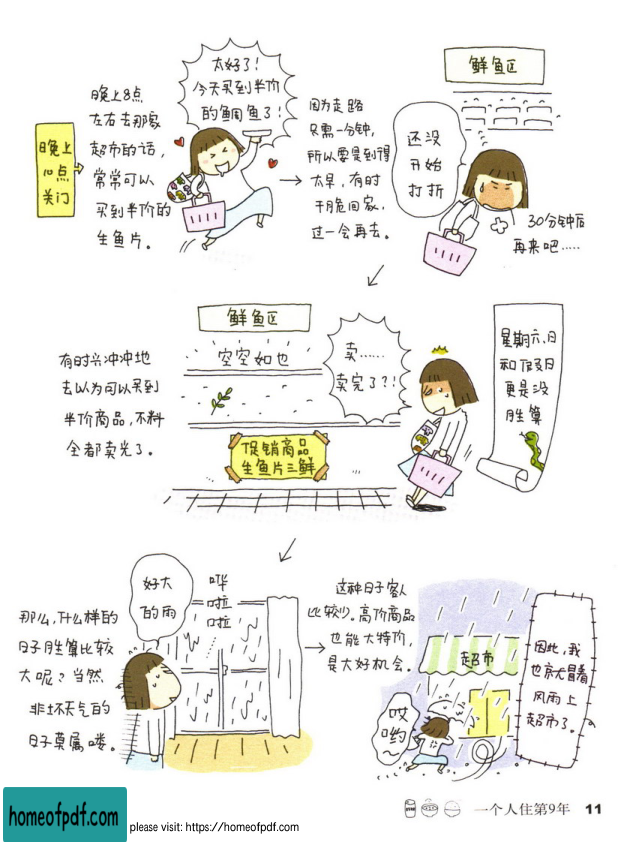 晚上
10点
关门
晚上8点
左右去那家
超市的话,
常常可以
买到半价的
生鱼片。
太好了!
今天买到半价
的鲷鱼了!
因为走路
只需一分钟,
所以要是到得
太早,有时
干脆回家,
过一会再去。
鲜鱼区
还没
开始
打折
30分钟后
再来吧……
有时兴冲冲地
去以为可以买到
半价商品,不料
全都卖光了。
鲜鱼区
空空如也
促销商品
生鱼片三鲜
卖……
卖完了?!
星期六、日
和假日
更是没
胜算
那么,什么样的
日子胜算比较
大呢?当然
非坏天气的
日子莫属喽。
好大
的雨
哗
啦
啦
这种日子客人
比较少。高价商品
也能大特价,
是大好机会。
超市
哎
哟~
因此,我
也常犬冒着
风雨上
超市了。
一个人住第9年 11
homeofpdf.com
please visit: https://homeofpdf.com